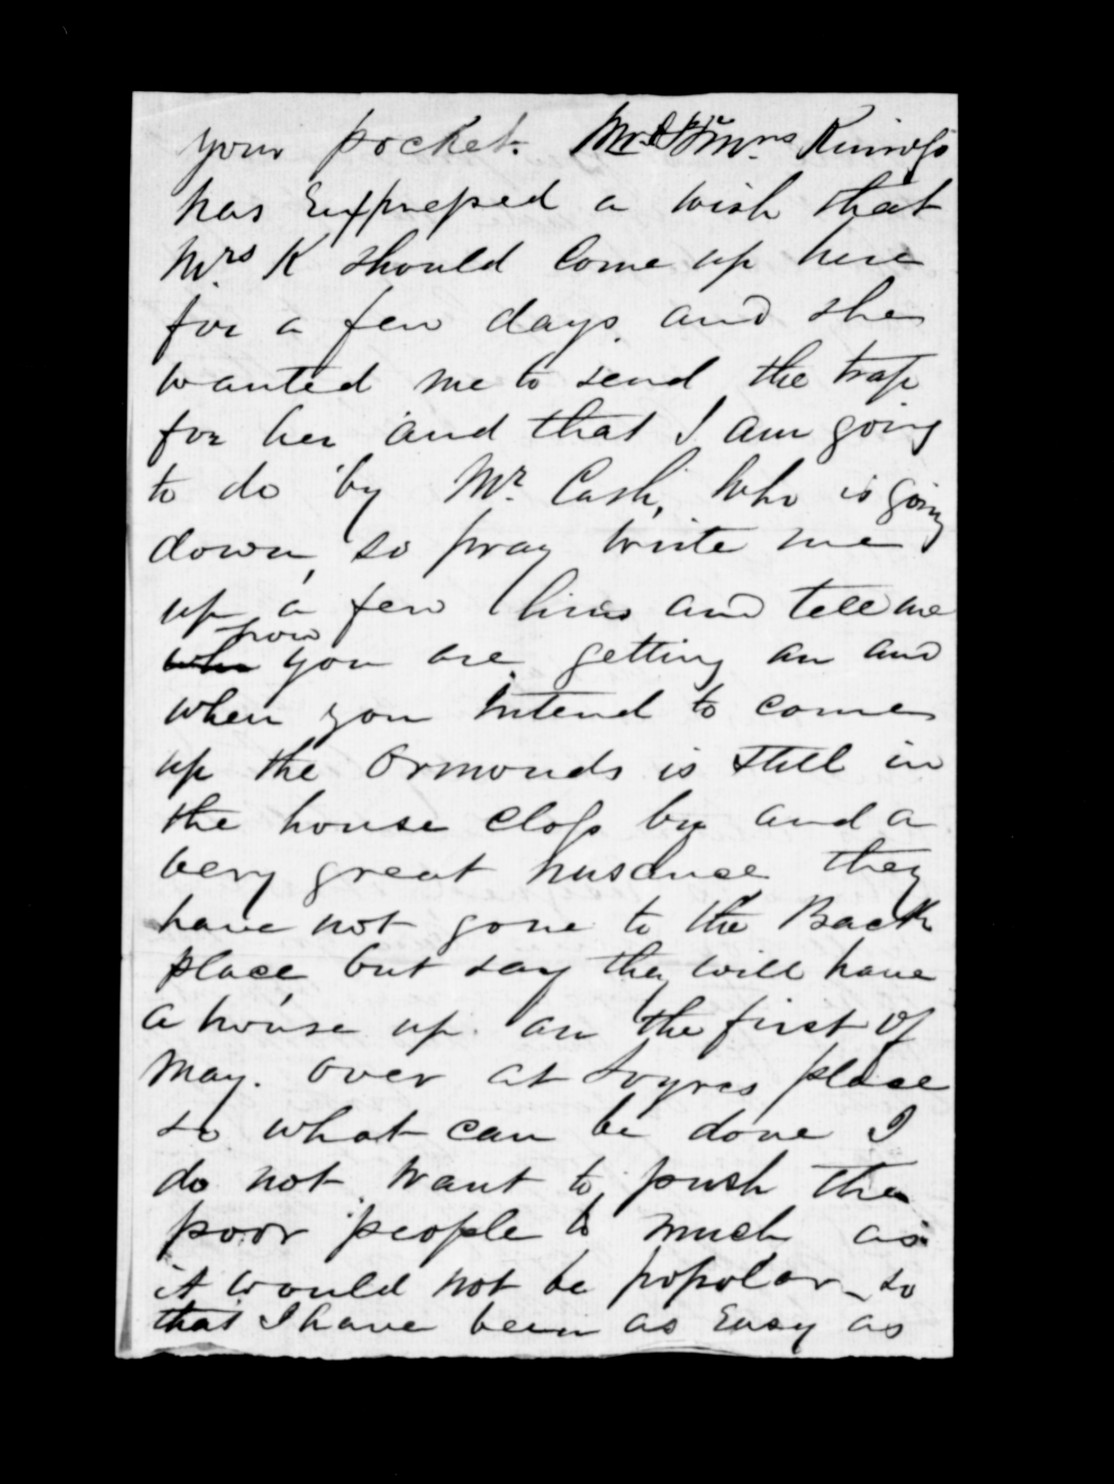 your pocket. Mr & Mrs
has Expressed a wish that
Mrs K should Come up here
for a few days. and she
wanted me to send the trap
for her and that I am going
to do by Mr. Cash, who is going
down, so pray write me
up a few lines and tell me
how you are getting an and
when you intend to come
up the Ormonds is still in
the house closs by and a
very great nusance they
have not gone to the Back
place, but say they will have
a house up. an the first of
May. over at place
so what can be done I
do not want to push the
poor people to much as
it would not be popolar so
that I have been as Easy as